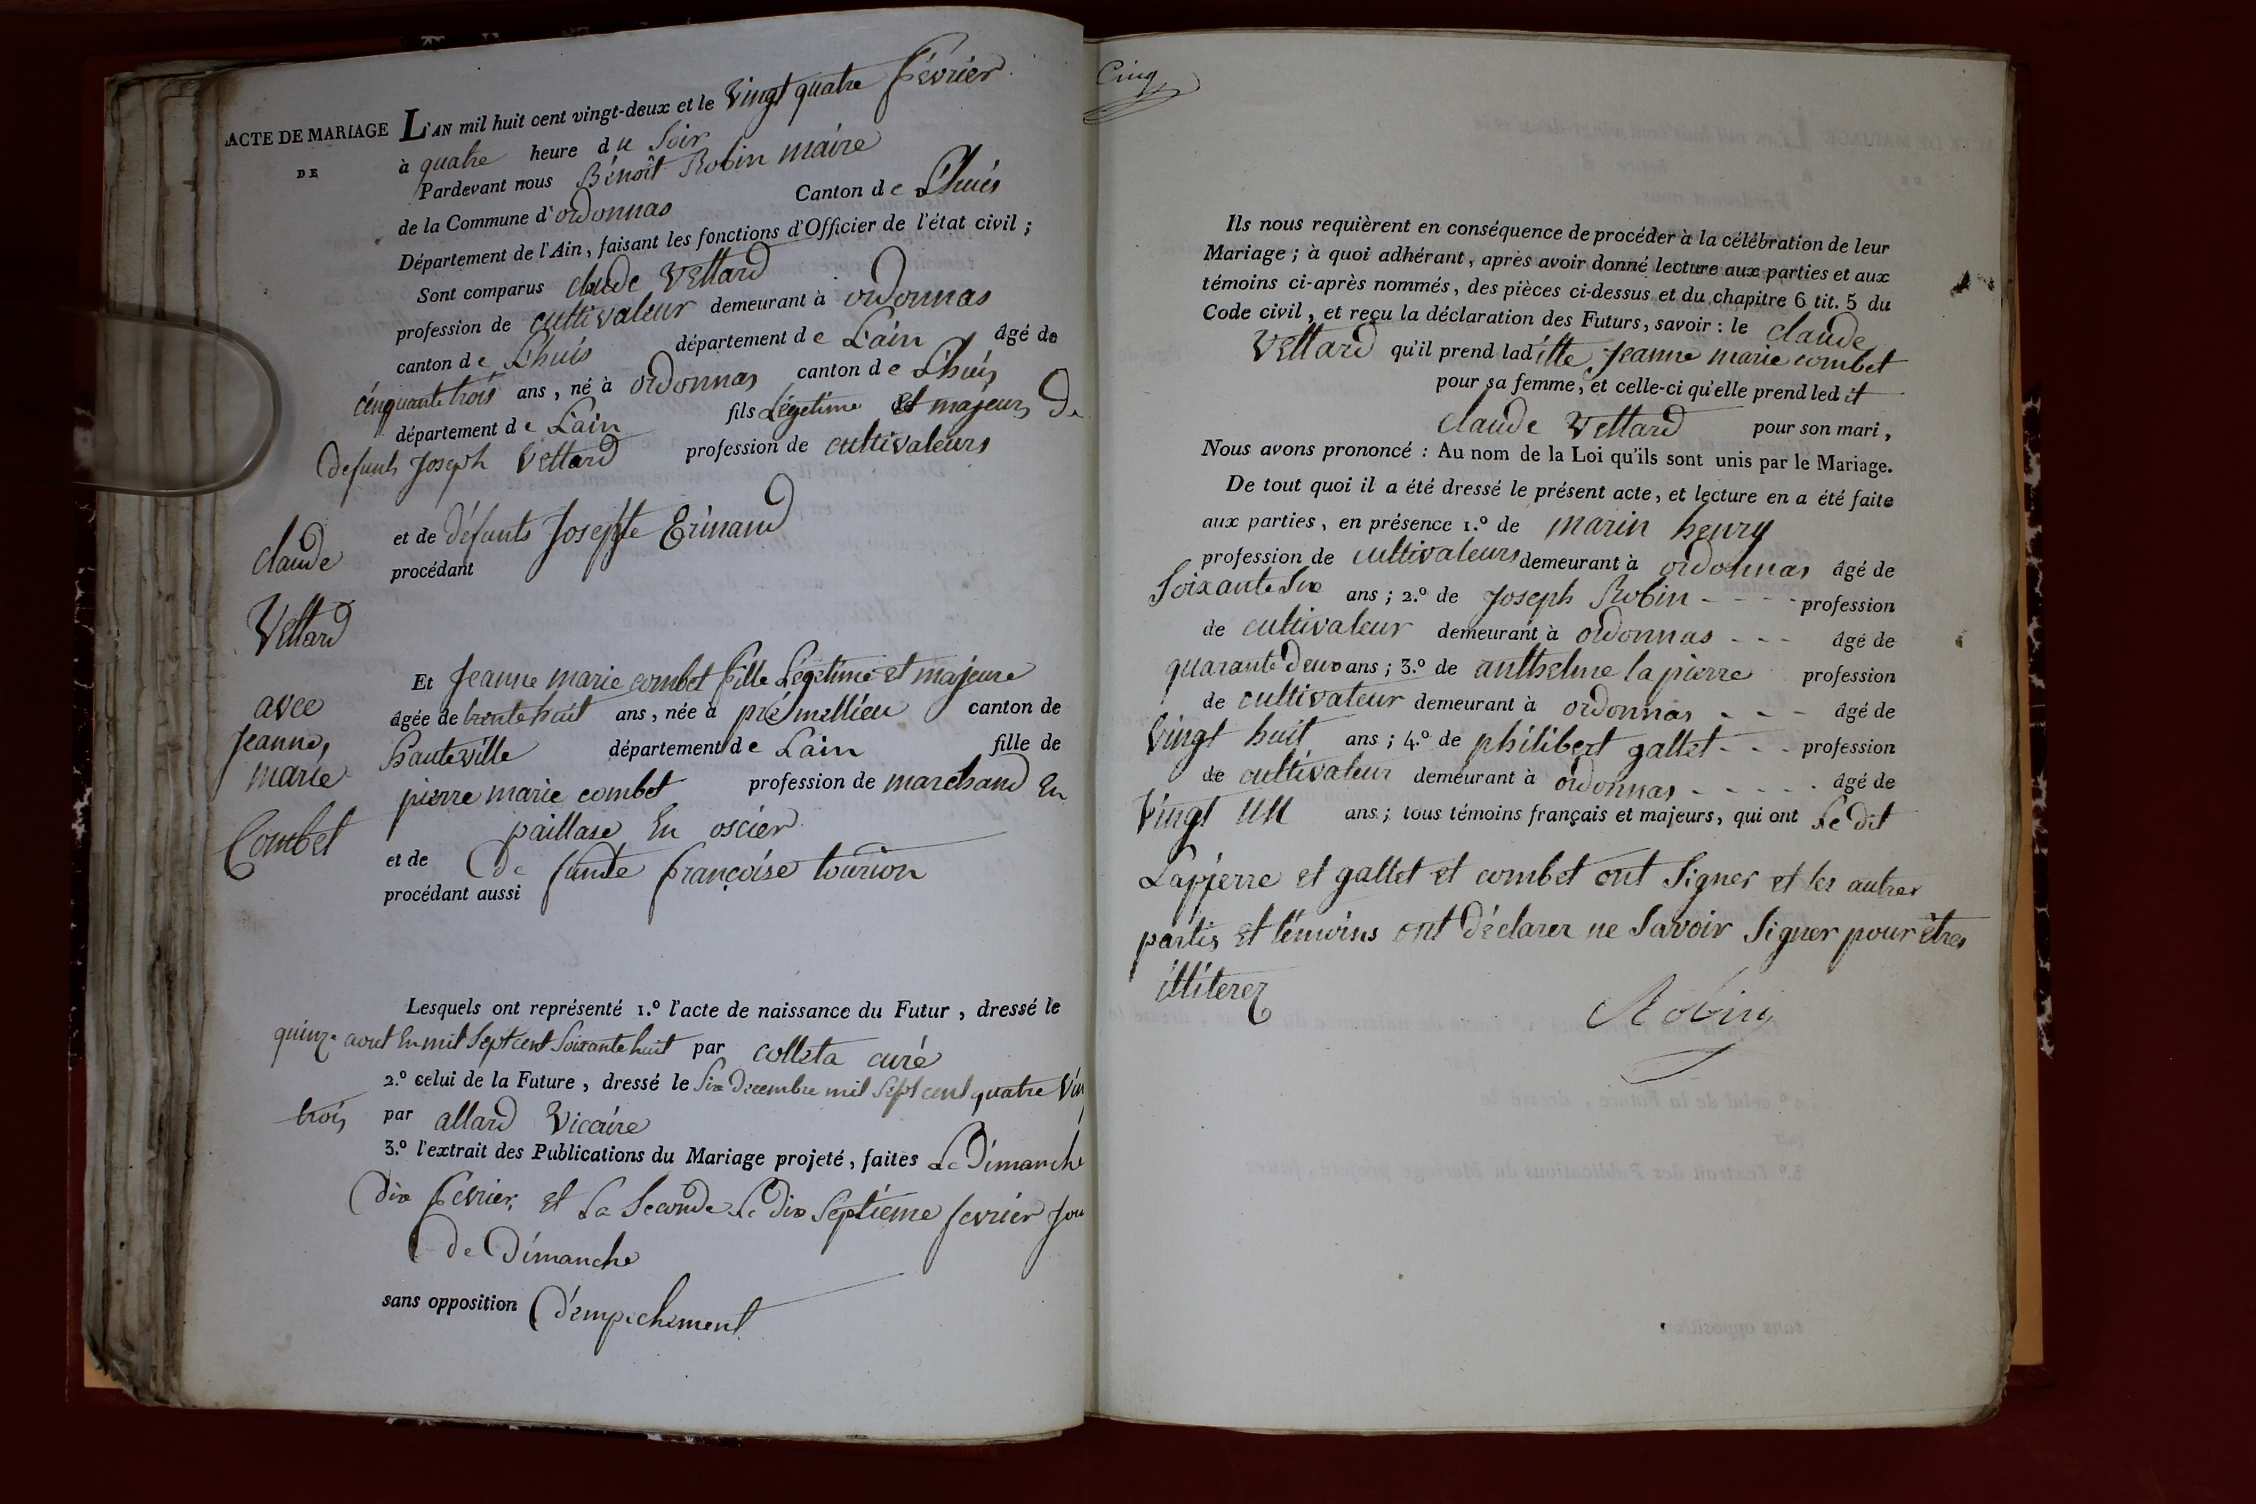 ACTE DE MARIAGE
DE
claude
Vettard
avec
jeanne,
marie
Combet
L'AN mil huit cent vingt-deux et le vingt quatre février
à quatre heure du soir
Pardevant nous Bénoit Robin maire
de la Commune d'ordonnas Canton de L'huis
Département de l'Ain, faisant les fonctions d'Officier de l'état civil ;
Sont comparus claude Vettard
profession de cultivateur demeurant à ordonnas
canton de L'huis département de L'ain âgé de
cinquante trois ans, né à ordonnas canton de L'huis
département de L'ain fils Légetime et majeur, de
defunts joseph Vettard profession de cultivateurs
et de défunts josephte Erinand
procédant
Et jeanne marie combet fille Légetime et majeure
âgée de trente huit ans, née à prémellieu canton de
hauteville département de L'ain fille de
pierre marie combet profession de marchand En
paillase En oscier
et de De funte françoise tourion
procédant aussi
Lesquels ont représenté 1.º l'acte de naissance du Futur, dressé le
quinze aout En mil Sept cent Soixante huit par colleta curé
2.º celui de la Future, dressé le Six Decembre mil Sept cent quatre vin
trois par allard Vicaire
3.º l'extrait des Publications du Mariage projeté, faites Le Dimanche
Dix fevrier, et La Seconde Le Dix Septieme fevrier jou
De Dimanche
sans opposition D'empechement
Cinq
Ils nous requièrent en conséquence de procéder à la célébration de leur
Mariage ; à quoi adhérant, après avoir donné lecture aux parties et aux
témoins ci-après nommés, des pièces ci-dessus et du chapitre 6 tit. 5 du
Code civil, et reçu la déclaration des Futurs, savoir : le claude
Vettard qu'il prend laditte jeanne marie combet
pour sa femme, et celle-ci qu'elle prend ledit
claude Vettard pour son mari,
Nous avons prononcé : Au nom de la Loi qu'ils sont unis par le Mariage.
De tout quoi il a été dressé le présent acte, et lecture en a été faite
aux parties, en présence 1.º de marin henry
profession de cultivateurs demeurant à ordonnas âgé de
Soixante Six ans ; 2.º de joseph Robin - - - - profession
de cultivateur demeurant à ordonnas - - - âgé de
quarante Deux ans ; 3.º de anthelme lapierre profession
de cultivateur demeurant à ordonnas - - - âgé de
Vingt huit ans ; 4.º de philibert gallet - - - profession
de cultivateur demeurant à ordonnas - - - - - âgé de
Vingt un ans ; tous témoins français et majeurs, qui ont Le dit
Lapierre et gallet et combet ont Signer et les autres
partis et témoins ont déclarer ne Savoir Signer pour êtres
illiterez
Robin